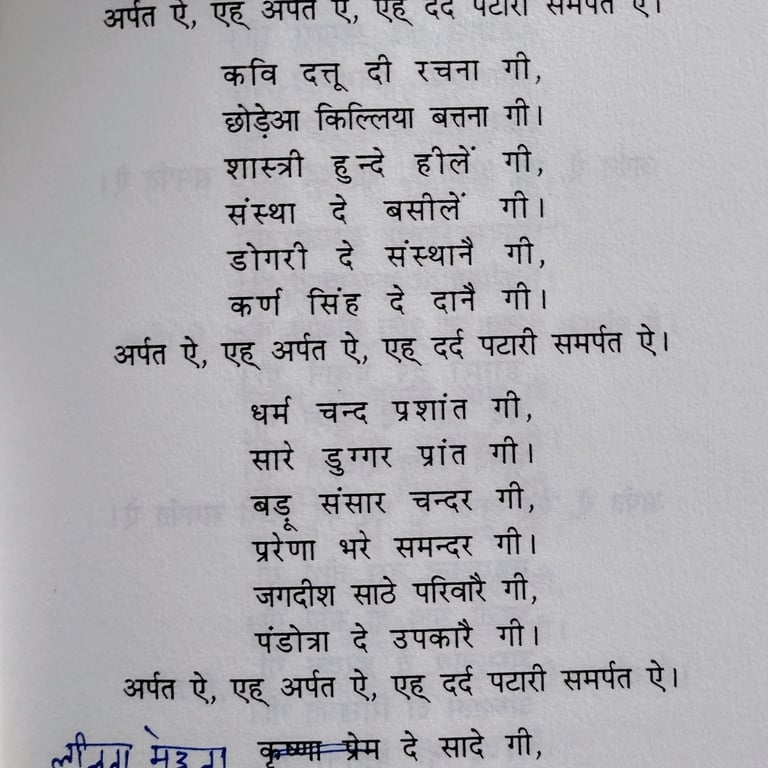 अर्पत ऐ, एह् अर्पत ऐ, एह् दर्द पटारी समर्पत ऐ।
कवि दत्तू दी रचना गी,
छोड़ेआ किल्लिया बत्तना गी।
शास्त्री हुन्दे हीलें गी,
संस्था दे बसीलें गी।
डोगरी दे संस्थानै गी,
कर्ण सिंह दे दानै गी।
अर्पत ऐ, एह् अर्पत ऐ, एह् दर्द पटारी समर्पत ऐ।
धर्म चन्द प्रशांत गी,
सारे डुग्गर प्रांत गी।
बड़ू संसार चन्दर गी,
प्ररेणा भरे समन्दर गी।
जगदीश साठे परिवारै गी,
पंडोत्रा दे उपकारै गी।
अर्पत ऐ, एह् अर्पत ऐ, एह् दर्द पटारी समर्पत ऐ।
कृष्णा प्रेम दे सादे गी,